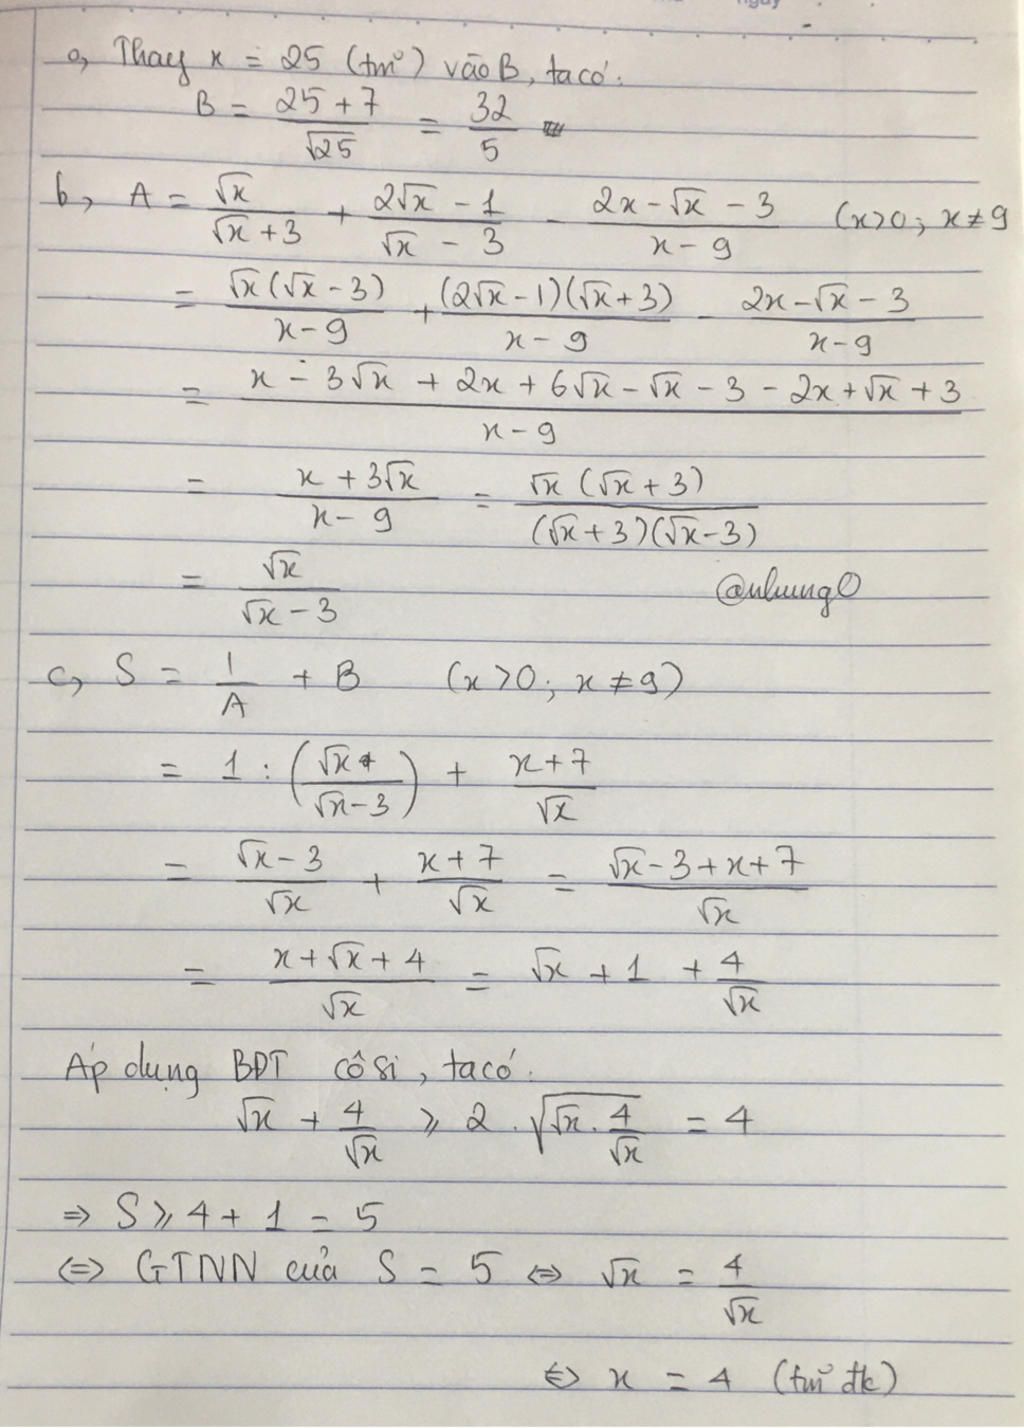 a, Thay x = 25 (tm) vào B, ta có:
B = (25 + 7)/√25 = 32/5
b, A = √x/(√x + 3) + (2√x - 1)/(√x - 3) - (2x - √x - 3)/(x - 9) (x>0; x ≠ 9
= √x(√x - 3)/(x - 9) + (2√x - 1)(√x + 3)/(x - 9) - (2x - √x - 3)/(x - 9)
= (x - 3√x + 2x + 6√x - √x - 3 - 2x + √x + 3)/(x - 9)
= (x + 3√x)/(x - 9) = √x(√x + 3)/((√x + 3)(√x - 3))
= √x/(√x - 3) @nhung0
c, S = 1/A + B (x>0; x ≠ 9)
= 1 : (√x/(√x - 3)) + (x + 7)/√x
= (√x - 3)/√x + (x + 7)/√x = (√x - 3 + x + 7)/√x
= (x + √x + 4)/√x = √x + 1 + 4/√x
Áp dụng BĐT côsi, ta có:
√x + 4/√x ⩾ 2 . √(√x . 4/√x) = 4
⇒ S ⩾ 4 + 1 = 5
⇔ GTNN của S = 5 ⇔ √x = 4/√x
⇔ x = 4 (tm đk)